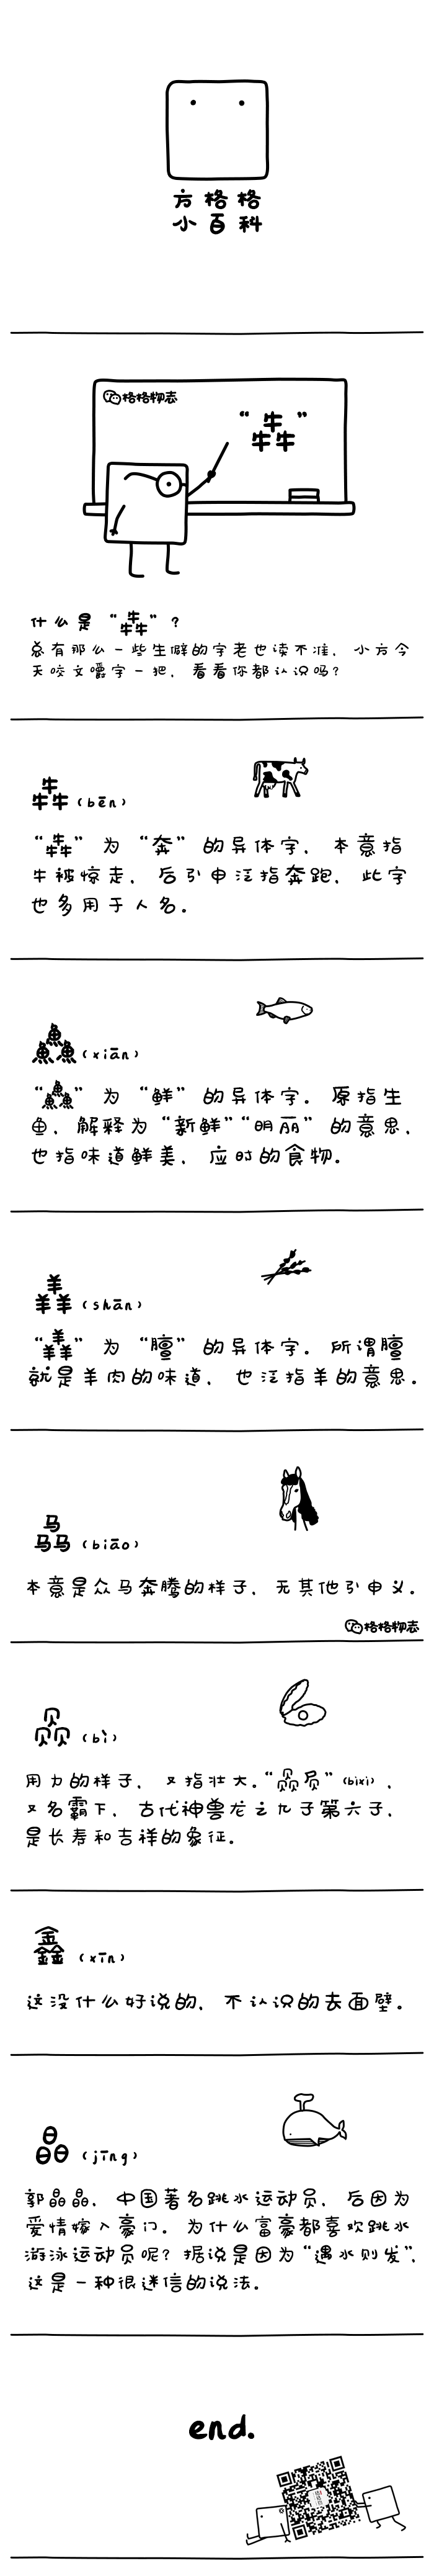 方格格
小百科
格格物志
“犇”
什么是“犇”？
总有那么一些生僻的字老也读不准，小方今
天咬文嚼字一把，看看你都认识吗？
犇（bēn）
“犇”为“奔”的异体字，本意指
牛被惊走，后引申泛指奔跑，此字
也多用于人名。
鱻（xiān）
“鱻”为“鲜”的异体字。原指生
鱼，解释为“新鲜”“明丽”的意思，
也指味道鲜美，应时的食物。
羴（shān）
“羴”为“膻”的异体字。所谓膻
就是羊肉的味道，也泛指羊的意思。
骉（biāo）
本意是众马奔腾的样子，无其他引申义。
格格物志
赑（bì）
用力的样子，又指壮大。“赑屃”（bìxì），
又名霸下，古代神兽龙之九子第六子，
是长寿和吉祥的象征。
鑫（xīn）
这没什么好说的，不认识的去面壁。
晶（jīng）
郭晶晶，中国著名跳水运动员，后因为
爱情嫁入豪门。为什么富豪都喜欢跳水
游泳运动员呢？据说是因为“遇水则发”，
这是一种很迷信的说法。
end.